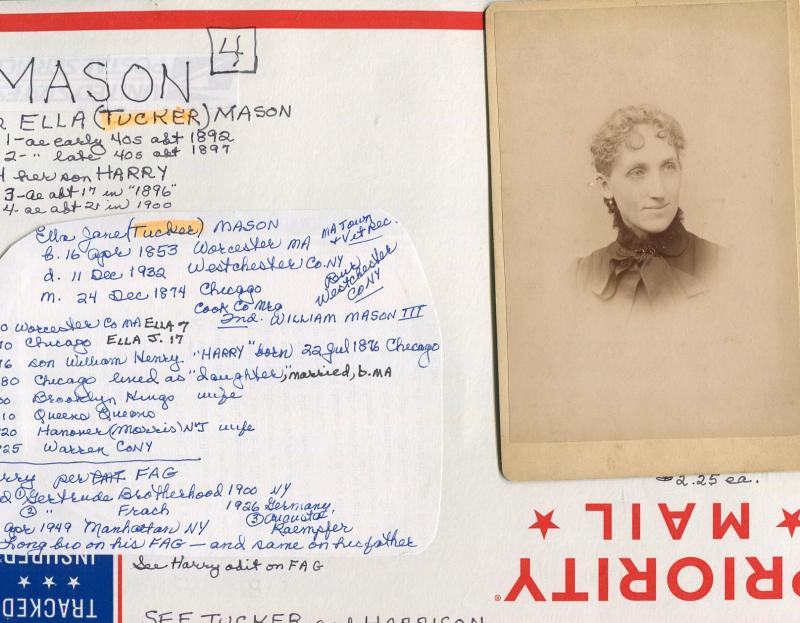 4
MASON
ELLA (TUCKER) MASON
1-ae early 40s abt 1892
2- " late 40s abt 1897
her son HARRY
3-ae abt 17 in "1896"
4-ae abt 21 in 1900
Ella Jane (Tucker) MASON
b. 16 Apr 1853 Worcester MA MA Town + Vit Rec.
d. 11 Dec 1932 Westchester Co. NY
m. 24 Dec 1874 Chicago Bur. Westchester CO NY
Cook Co Mrg
0 Worcester Co MA ELLA 7 2nd. WILLIAM MASON III
70 Chicago ELLA J. 17
76 son William Henry "HARRY" born 22 Jul 1876 Chicago
80 Chicago lined as "daughter", married, b. MA
00 Brooklyn Kings wife
10 Queens Queens
20 Hanover (Morris) NJ wife
25 Warren Co NY
per FAG
① Gertrude Brotherhood 1900 NY
② " Frach 1926 Germany,
③ Augusta Kaempfer
Apr 1949 Manhattan NY
Long bio on his FAG — and same on his father
See Harry obit on FAG
SEE TUCKER and HARRISON
2.25 ea.
PRIORITY
MAIL
TRACKED
INSURED